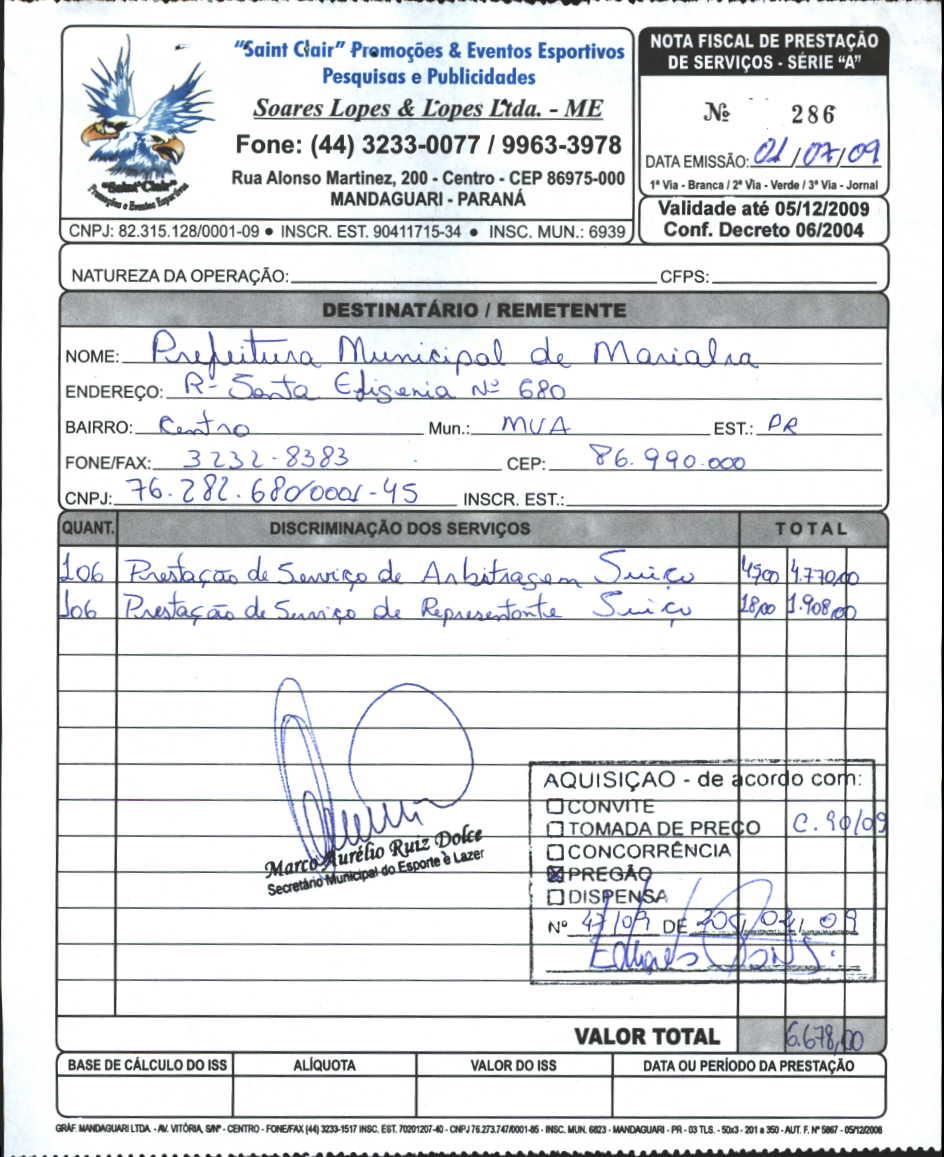 "Saint Clair" Promoções & Eventos Esportivos
Pesquisas e Publicidades
Soares Lopes & Lopes Ltda. - ME
Fone: (44) 3233-0077 / 9963-3978
Rua Alonso Martinez, 200 - Centro - CEP 86975-000
MANDAGUARI - PARANÁ
"Saint Clair"
Promoções e Eventos Esportivos
CNPJ: 82.315.128/0001-09 ● INSCR. EST. 90411715-34 ● INSC. MUN.: 6939
NOTA FISCAL DE PRESTAÇÃO
DE SERVIÇOS - SÉRIE "A"
Nº 286
DATA EMISSÃO: 01/07/09
1ª Via - Branca / 2ª Via - Verde / 3ª Via - Jornal
Validade até 05/12/2009
Conf. Decreto 06/2004
NATUREZA DA OPERAÇÃO: CFPS:
DESTINATÁRIO / REMETENTE
NOME: Prefeitura Municipal de Marialva
ENDEREÇO: R- Santa Efigenia Nº 680
BAIRRO: Centro Mun.: MVA EST.: PR
FONE/FAX: 3232-8383 CEP: 86.990.000
CNPJ: 76.282.680/0001-45 INSCR. EST.:
QUANT. DISCRIMINAÇÃO DOS SERVIÇOS TOTAL
106 Prestação de Serviço de Arbitragem Suiço 45,00 4.770,00
106 Prestação de Serviço de Representante Suiço 18,00 1.908,00
Marco Aurélio Ruiz Dolce
Secretário Municipal do Esporte e Lazer
AQUISIÇAO - de acordo com:
CONVITE
TOMADA DE PREÇO C. 90/09
CONCORRÊNCIA
PREGÃO
DISPENSA
Nº 47/09 DE 09
VALOR TOTAL 6.678,00
BASE DE CÁLCULO DO ISS ALÍQUOTA VALOR DO ISS DATA OU PERÍODO DA PRESTAÇÃO
GRÁF. MANDAGUARI LTDA. - AV. VITÓRIA, S/Nº - CENTRO - FONE/FAX (44) 3233-1517 INSC. EST. 70201207-40 - CNPJ 76.273.747/0001-85 - INSC. MUN. 6823 - MANDAGUARI - PR - 03 TLS. - 50x3 - 201 a 350 - AUT. F. Nº 5867 - 05/12/2008